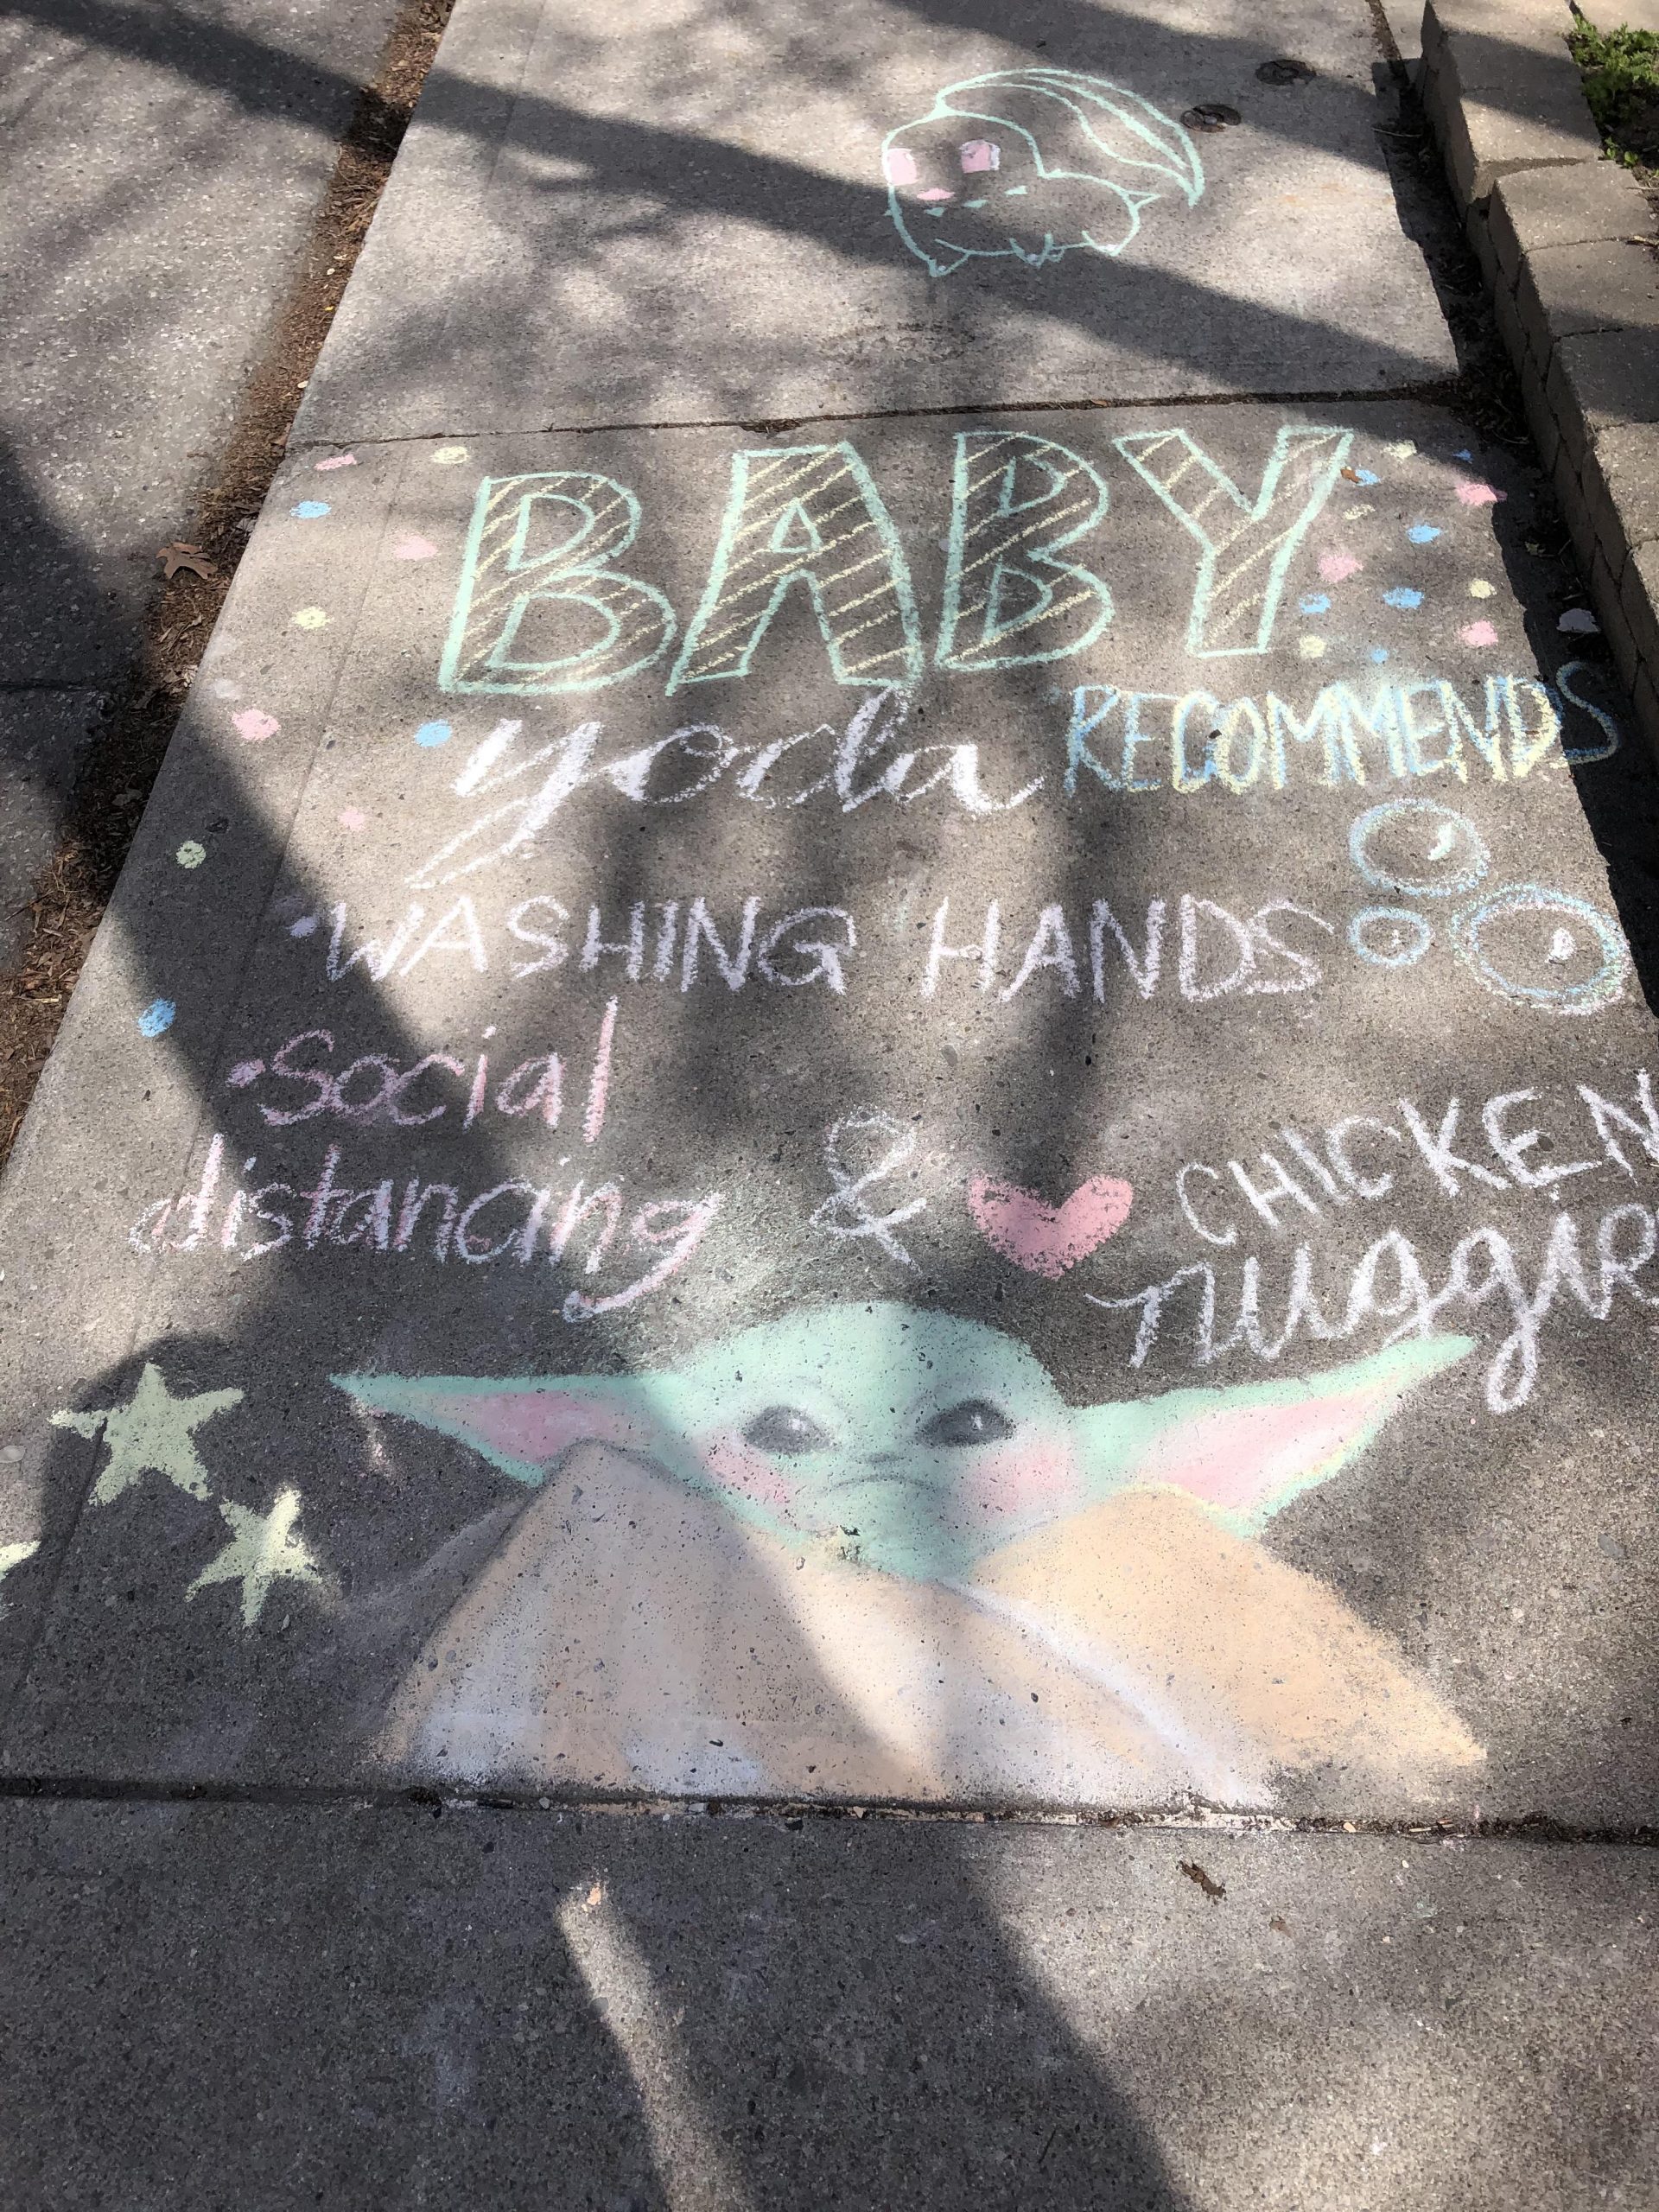 BABY
yoda RECOMMENDS
• WASHING HANDS
• Social
distancing & CHICKEN